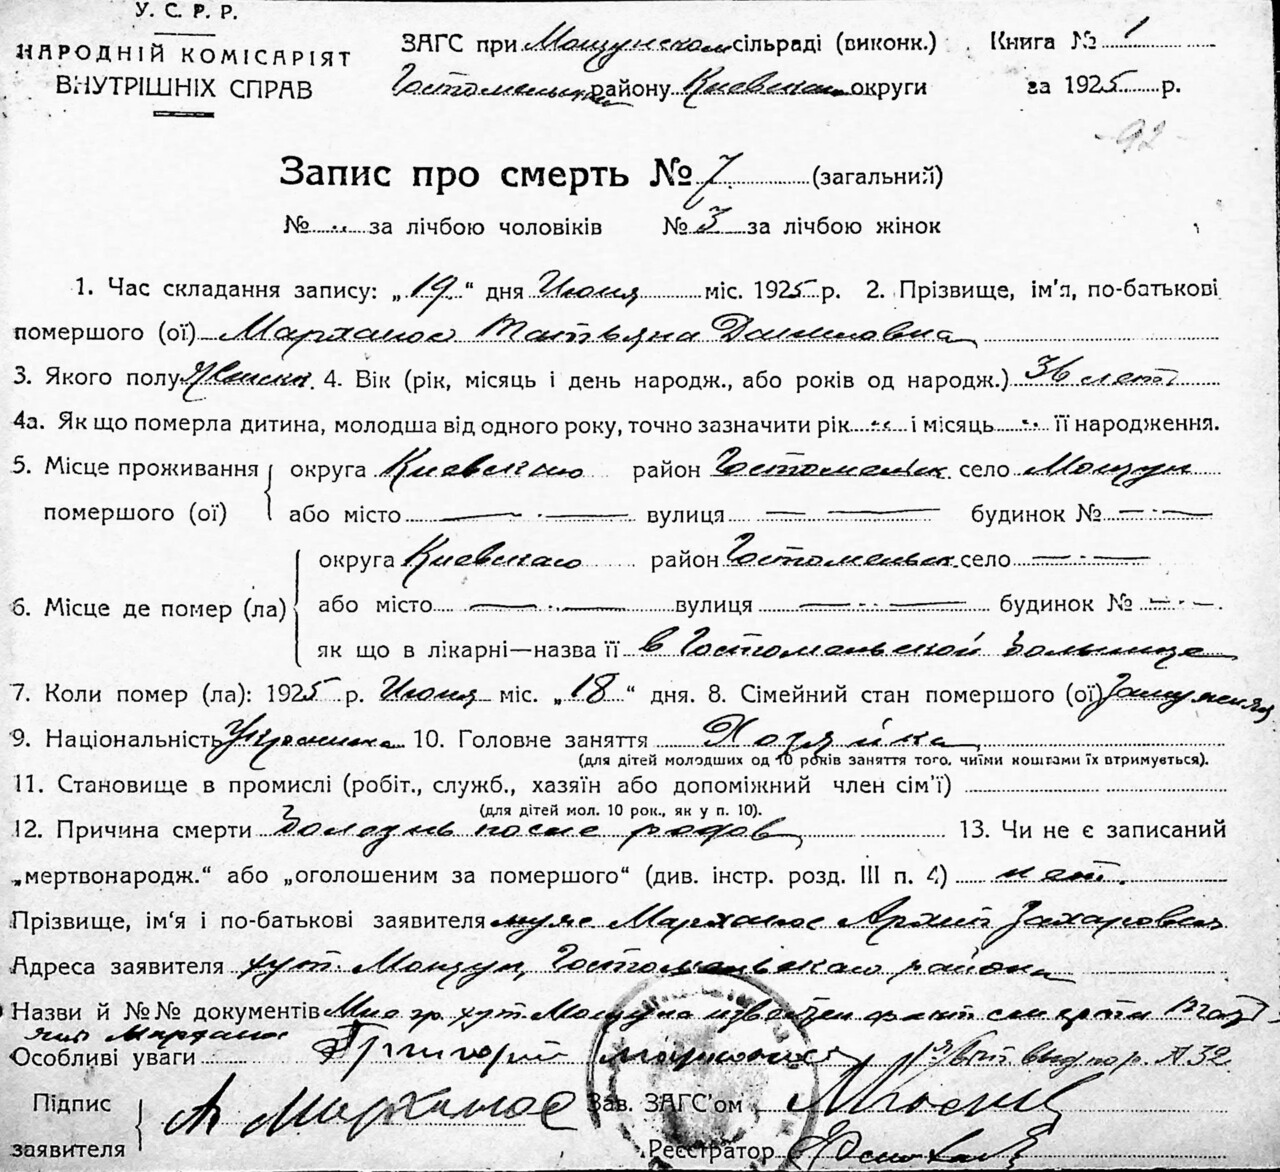 У. С. Р. Р.
НАРОДНІЙ КОМІСАРІЯТ
ВНУТРІШНІХ СПРАВ
ЗАГС при Мощунском сільраді (виконк.) Книга № 1
Гостомельский району Киевской округи за 1925 р.
92
Запис про смерть № 7 (загальний)
№ за лічбою чоловіків № 3 за лічбою жінок
1. Час складання запису: „19“ дня Июня міс. 1925 р. 2. Прізвище, ім'я, по-батькові
помершого (ої) Марханос Татьяна Даниловна
3. Якого полу Женски. 4. Вік (рік, місяць і день народж., або років од народж.) 36 лет
4а. Як що померла дитина, молодша від одного року, точно зазначити рік і місяць її народження.
5. Місце проживання помершого (ої) округа Киевскаго район Гостомельск. село Мощун
або місто — вулиця — будинок № —
6. Місце де помер (ла) округа Киевскаго район Гостомельск. село —
або місто — вулиця — будинок № —
як що в лікарні—назва її в Гостомельской больнице
7. Коли помер (ла): 1925 р. Июня міс. „18“ дня. 8. Сімейний стан помершого (ої) Замужняя
9. Національність Украинка 10. Головне заняття Хозяйка
(для дітей молодших од 10 років заняття того, чиїми коштами їх втримується).
11. Становище в промислі (робіт., служб., хазяїн або допоміжний член сім'ї)
(для дітей мол. 10 рок., як у п. 10).
12. Причина смерти Болезнь после родов 13. Чи не є записаний
„мертвонародж.“ або „оголошеним за помершого“ (див. інстр. розд. III п. 4) нет.
Прізвище, ім'я і по-батькові заявителя муж Марханос Архип Захарович
Адреса заявителя хут. Мощун, Гостомельскаго района
Назви й №№ документів Мне гр. хут. Мощуна известен факт смерти
Особливі уваги Григорий
Підпис заявителя А Марханос Зав. ЗАГС'ом
Реєстратор